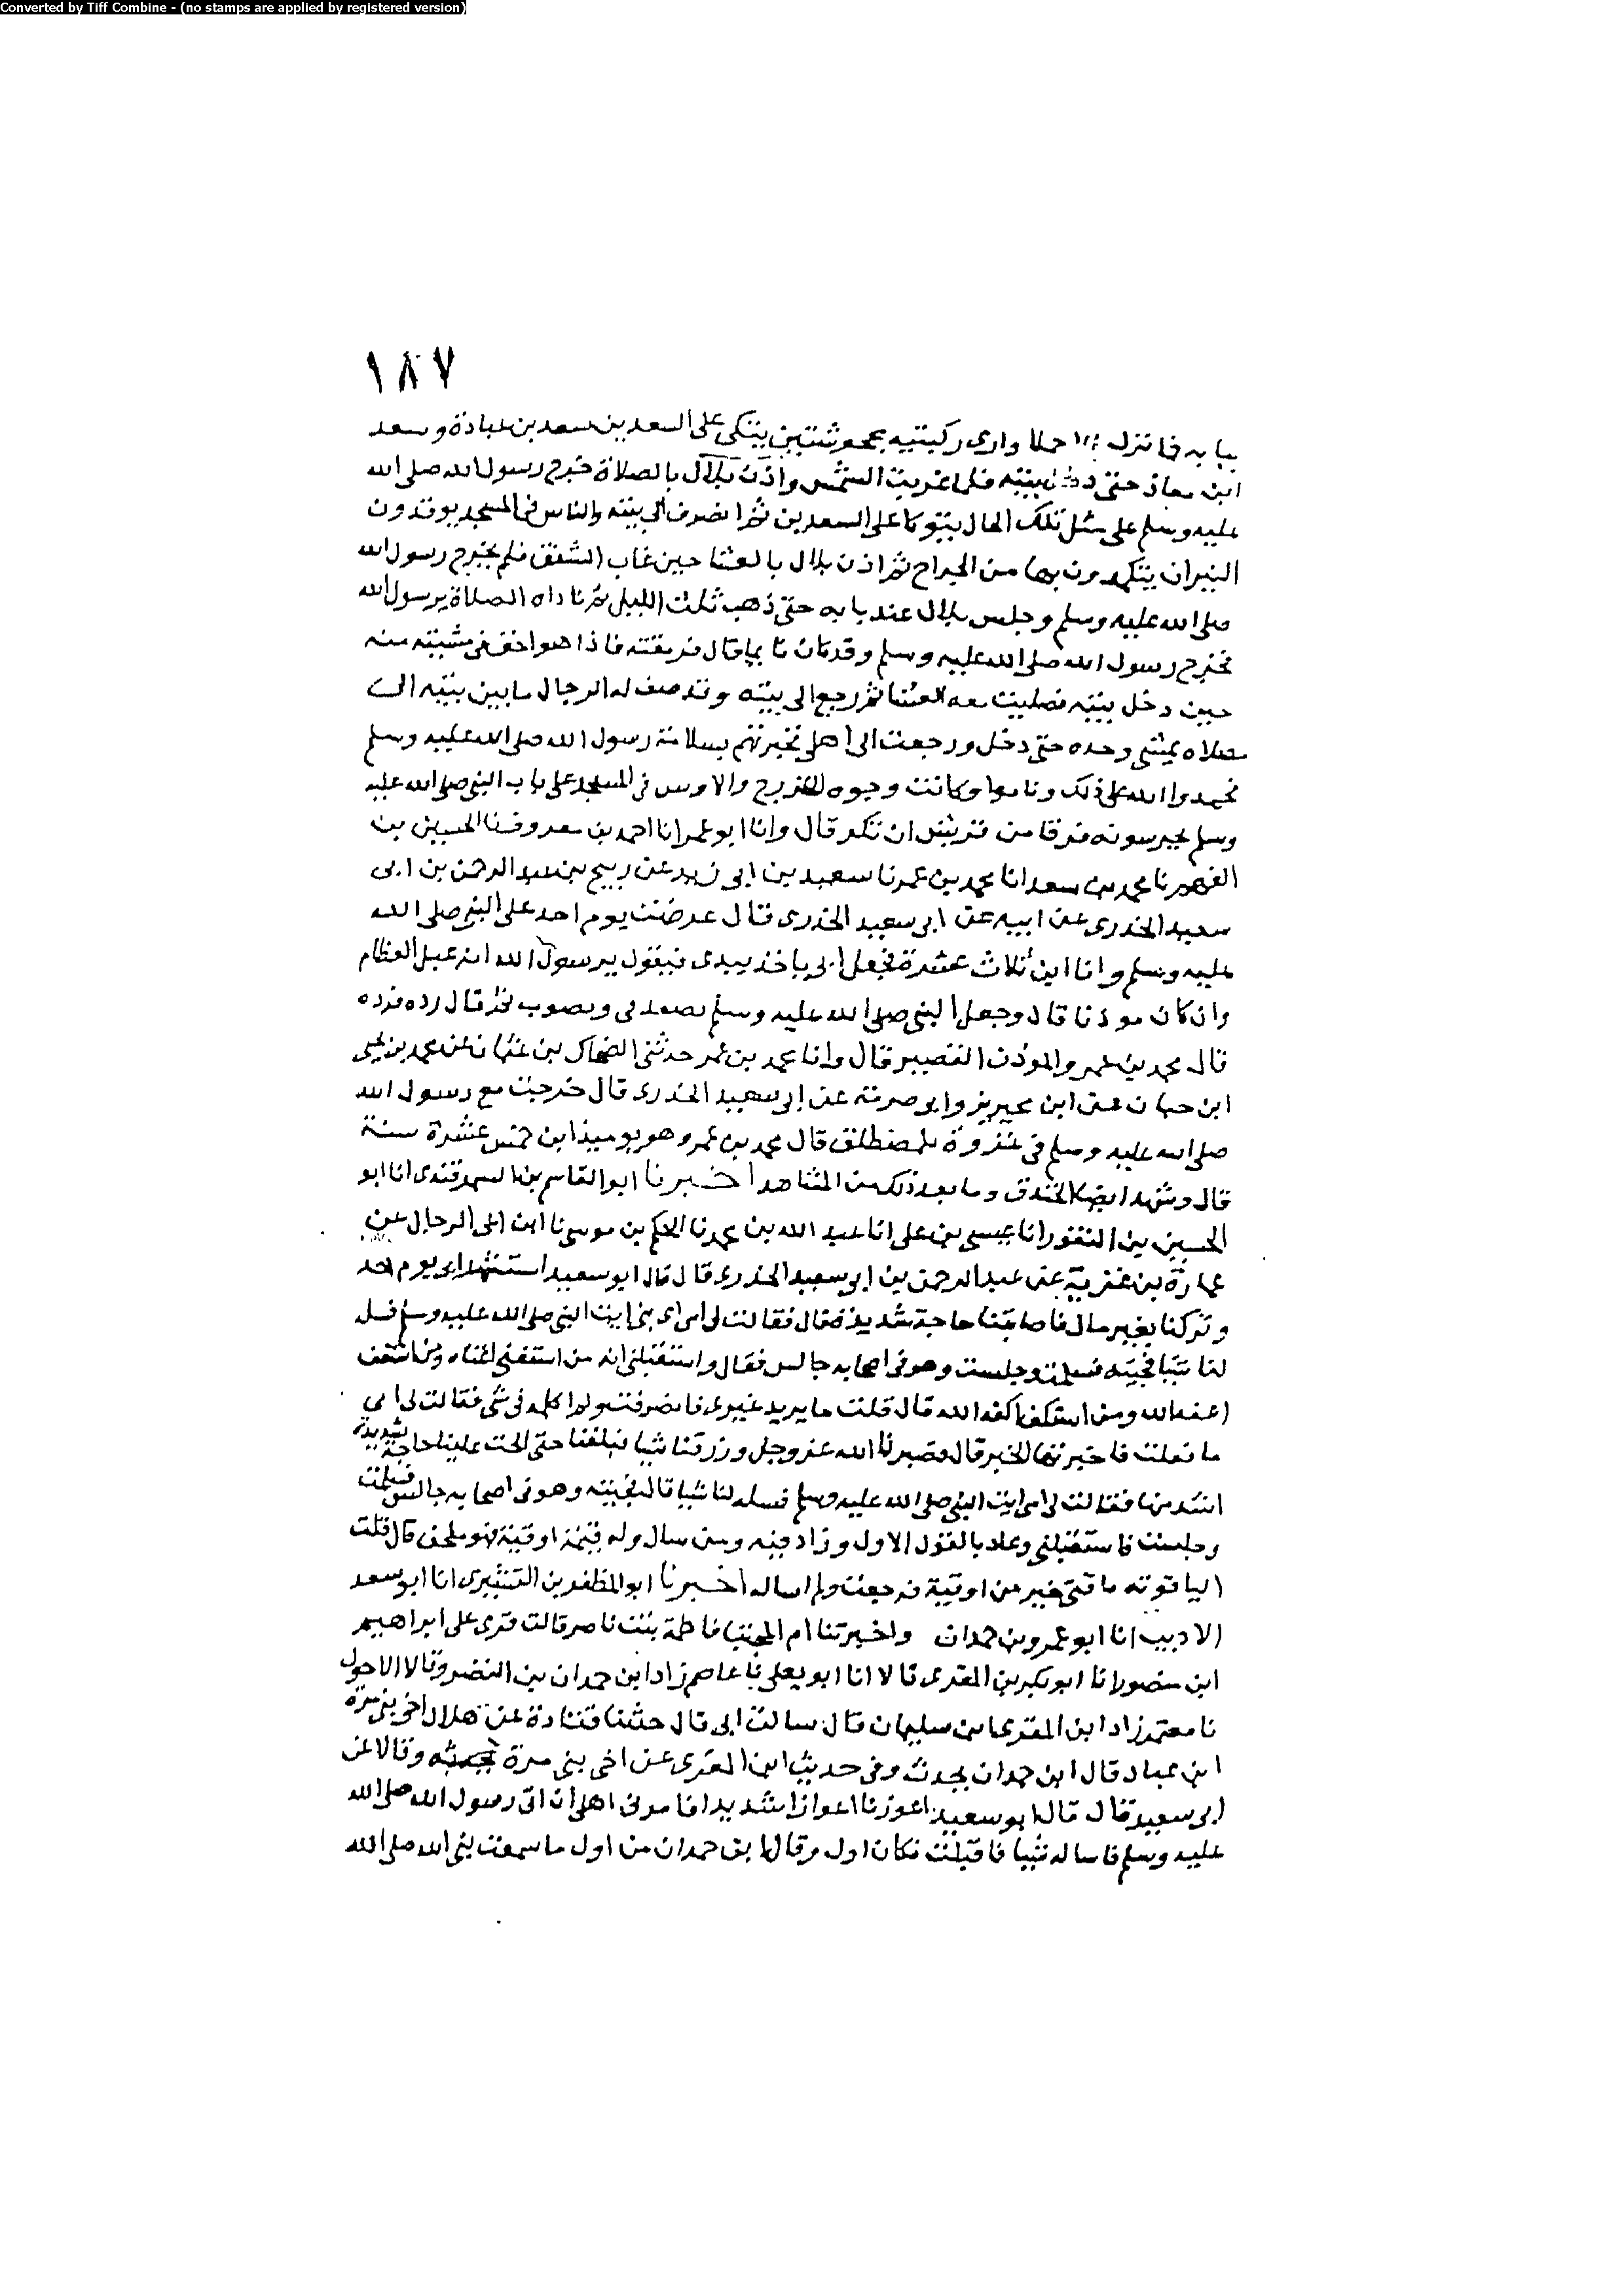 Converted by Tiff Combine - (no stamps are applied by registered version)
١٨٧
ببابه فما نزل الا حملا وارى ركبتيه مجحوشتين يتكى على السعدين سعد بن عبادة وسعد
ابن معاذ حتى دخل بيته فلما غربت الشمس واذن بلال بالصلاة خرج رسول الله صلى الله
عليه وسلم على مثل تلك الحال يتوكا على السعدين ثم انصرف الى بيته والناس في المسجد يوقدون
النيران يتكمدون بها من الجراح ثم اذن بلال بالعشا حين غاب الشفق فلم يخرج رسول الله
صلى الله عليه وسلم وجلس بلال عند بابه حتى ذهب ثلث الليل ثم ناداه الصلاة يرسول الله
فخرج رسول الله صلى الله عليه وسلم وقد كان نايما قال فرمقته فاذا هو اخف في مشيته منه
حين دخل بيته فصليت معه العشا ثم رجع الى بيته وقد صف له الرجال ما بين بيته الى
مصلاه يمشي وحده حتى دخل ورجعت الى اهلي فخبرتهم بسلامة رسول الله صلى الله عليه وسلم
فحمدوا الله على ذلك وناموا وكانت وجوه الخزرج والاوس في المسجد على باب النبي صلى الله عليه
وسلم يحرسونه فرقا من قريش ان تكر قال وانا ابو عمر انا احمد بن معروف نا الحسين بن
الفهم نا محمد بن سعد انا محمد بن عمر نا سعيد بن ابي زيد عن ربيح بن عبد الرحمن بن ابي
سعيد الخدري عن ابيه عن ابي سعيد الخدري قال عرضت يوم احد على النبي صلى الله
عليه وسلم وانا ابن ثلاث عشرة فجعل ابي ياخذ بيدي فيقول يرسول الله انه عبل العظام
وان كان موذنا قال وجعل النبي صلى الله عليه وسلم يصعد في ويصوب ثم قال رده فرده
قال محمد بن عمر والموذن القصير قال وانا محمد بن عمر حدثني الضحاك بن عثمان عن محمد بن يحيى
ابن حبان عن ابن محيريز وابو صرمة عن ابي سعيد الخدري قال خرجت مع رسول الله
صلى الله عليه وسلم في غزوة بلمصطلق قال محمد بن عمر وهو يوميذ ابن خمس عشرة سنة
قال وشهد ايضا الخندق وما بعد ذلك من المشاهد اخبرنا ابو القاسم بن السمرقندي انا ابو
الحسين بن النقور انا عيسى بن علي انا عبد الله بن محمد نا الحكم بن موسى نا ابن ابي الرجال عن
عمارة بن غزية عن عبد الرحمن بن ابي سعيد الخدري قال قال ابو سعيد استشهد ابي يوم احد
وتركنا بغير مال فاصابتنا حاجة شديدة قال فقالت لي امي اي بني ايت النبي صلى الله عليه وسلم فسل
لنا شيا فجيته فسلمت وجلست وهو في اصحابه جالس فقال واستقبلني انه من استغنى اغناه ومن استعف
اعفه الله ومن استكف اكفه الله قال قلت ما يريد غيري فانصرفت ولم اكلمه في شي فقالت لي امي
ما فعلت فاخبرتها الخبر قال فصبرنا الله عز وجل ورزقنا شيا فبلغنا حتى الحت علينا حاجة شديدة
اشد منها فقالت لي امي ايت النبي صلى الله عليه وسلم فسله لنا شيا قال فجيته وهو في اصحابه جالس فسلمت
وجلست فاستقبلني وعاد بالقول الاول وزاد فيه ومن سال وله قيمة اوقية فهو ملحف قال قلت
الياقوته ناقتي خير من اوقية فرجعت ولم اساله اخبرنا ابو المظفر بن القشيري انا ابو سعد
الاديب انا ابو عمرو بن حمدان واخبرتنا ام المجتبى فاطمة بنت ناصر قالت قري على ابراهيم
ابن منصور انا ابو بكر بن المقري قالا انا ابو يعلى نا عاصم زاد ابن حمدان بن النضر وقالا الاحول
نا معتمر زاد ابن المقري بن سليمان قال سالت ابي قال حدثنا قتادة عن هلال اخي بني مرة
ابن عباد قال ابن حمدان يحدث وفي حديث ابن المقري عن اخي بني مرة وقالا عن
ابي سعيد قال قال ابو سعيد اعوزنا اعوازا شديدا فامرني اهلي ان اتي رسول الله صلى الله
عليه وسلم فاساله شيا فاقبلت فكان اول وقال ابن حمدان من اول ما سمعت نبي الله صلى الله